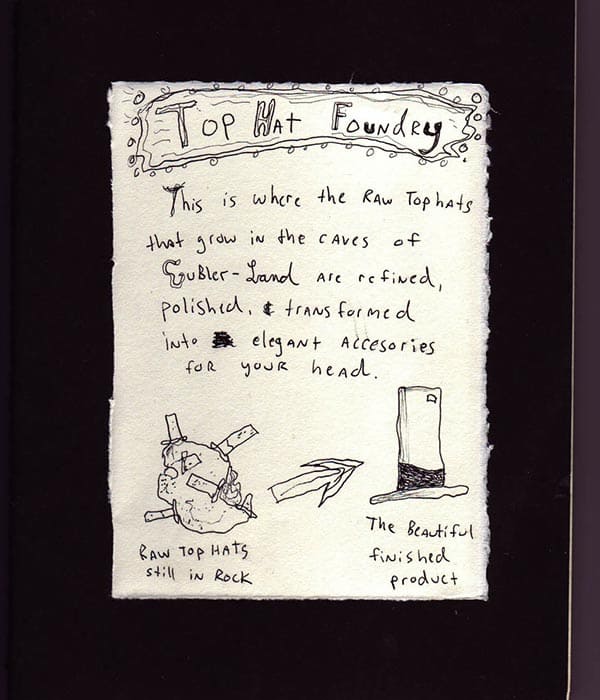 Top Hat Foundry
This is where the Raw Tophats
that grow in the caves of
Gubler-Land are refined,
polished, & transformed
into elegant accesories
for your head.
Raw Top Hats
still in Rock
The Beautiful
finished
product